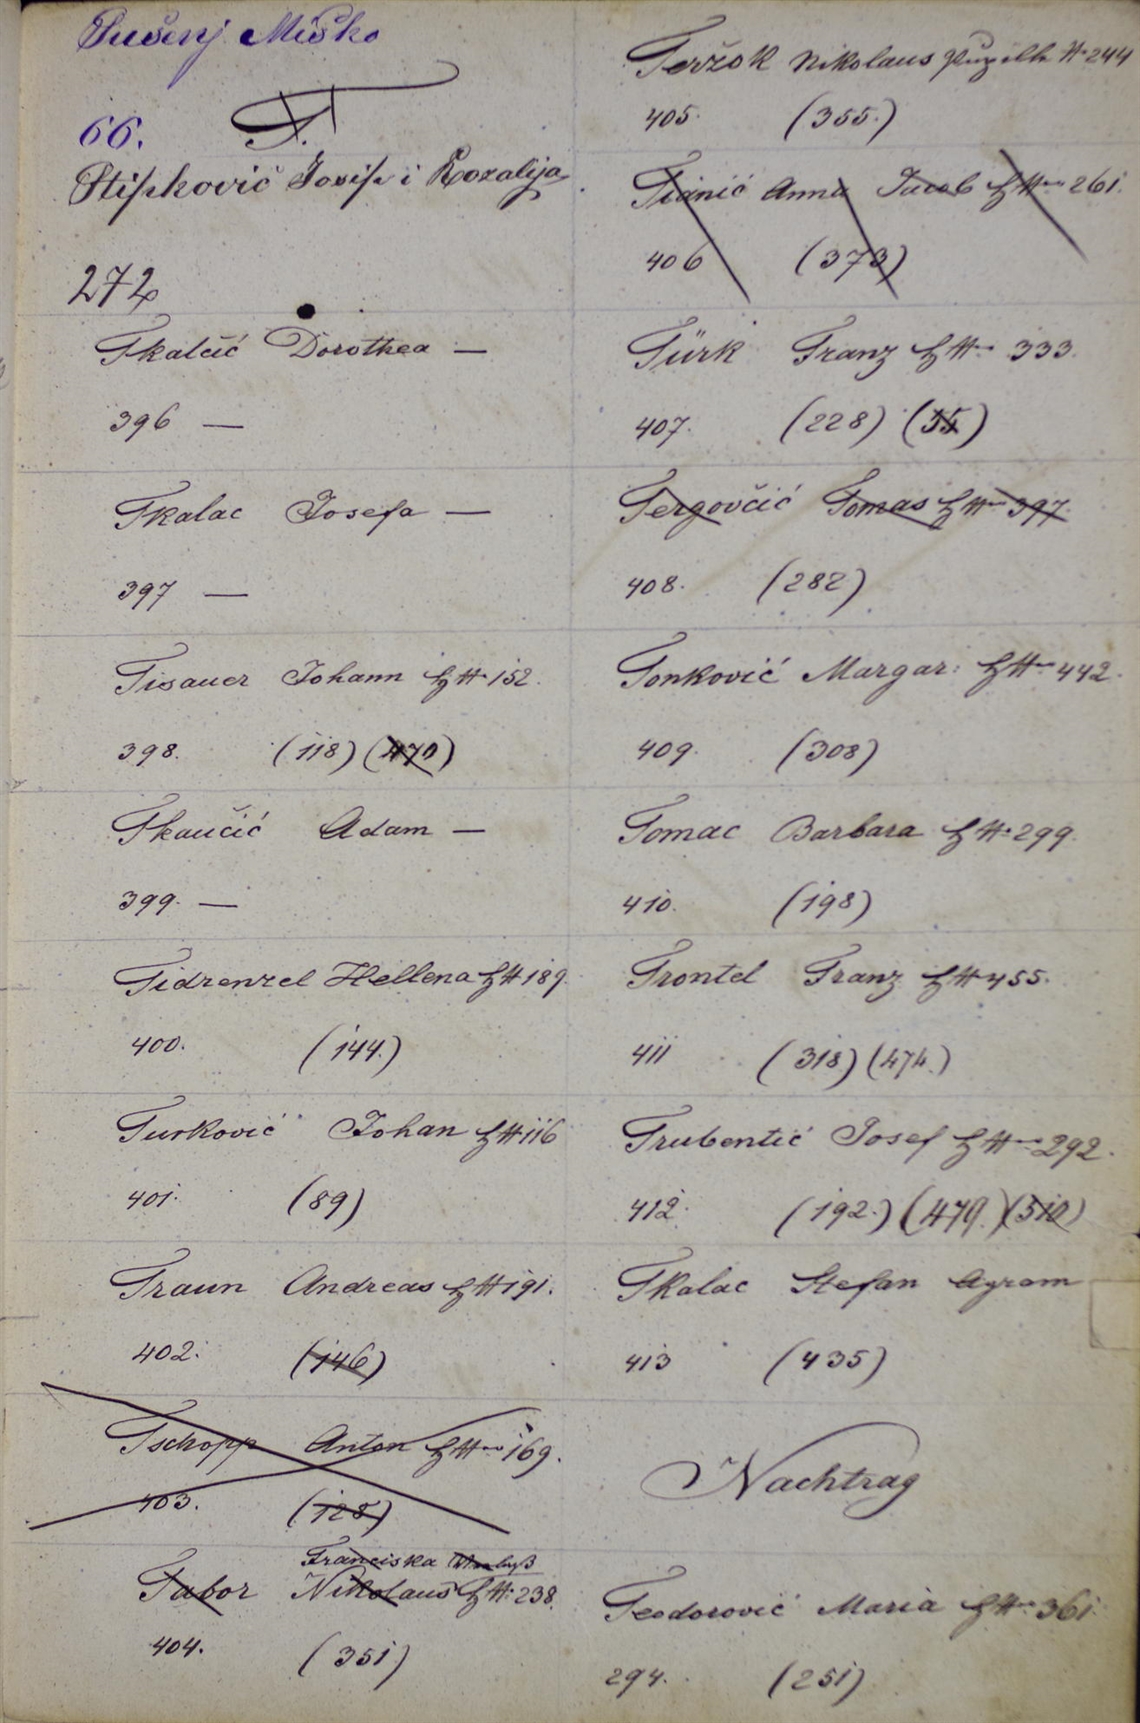 Sušenj Miško
66. T.
Stipković Josip i Rozalija
272
Tkalčić Dorothea —
396 —
Tkalac Josefa —
397 —
Tisauer Johann H№ 152.
398. (118) (470)
Tkaučić Adam —
399. —
Tidrenzel Hellena H№ 189
400. (144.)
Turković Johan H№ 116
401. (89)
Traun Andreas H№ 191.
402. (146)
Tschopp Anton H№ 169.
403. (128)
Franciska
Tabor Nikolaus H№ 238.
404. (351)
Teržok Nikolaus Pupille № 244
405. (355.)
Tianić Anna Jacob H№ 261.
406 (373)
Türk Franz H№ 333.
407. (228) (35)
Tergovčić Tomas H№ 397.
408. (282)
Tonković Margar: H№ 442.
409. (308)
Tomac Barbara H№ 299.
410. (198)
Trontel Franz H№ 455.
411 (318) (474.)
Trubentić Josef H№ 292.
412. (192.) (479.) (510)
Tkalac Stefan Agram
413 (435)
Nachtrag
Teodorović Maria H№ 361.
294. (251)